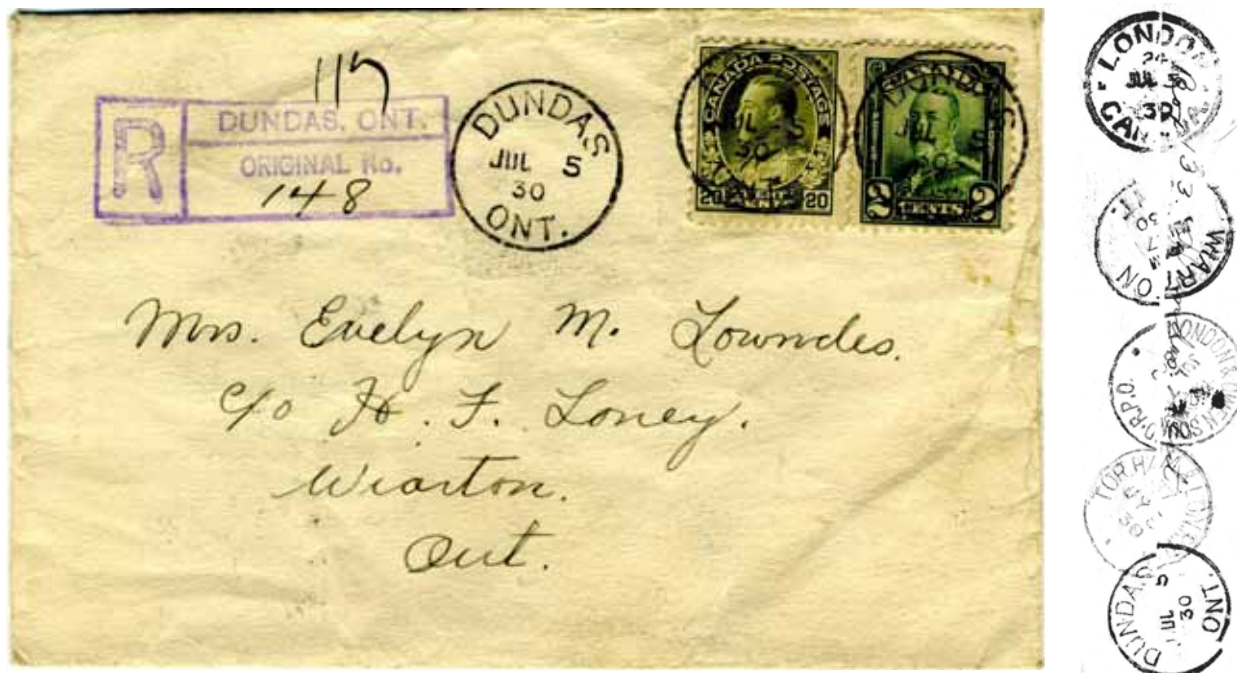 117
R
DUNDAS, ONT.
ORIGINAL No.
148
DUNDAS
JUL 5
30
ONT.
CANADA POSTAGE
20 20
DUNDAS
JUL 5
30
2 2
Mrs. Evelyn M. Lowndes.
c/o H. F. Loney.
Wiarton.
Ont.
LONDON
24
JUL 5
30
CANADA
WIARTON
ONT.
7
30
LONDON & OWEN SOUND R.P.O.
TOR. HAM. & LON.
30
DUNDAS
JUL 5
30
ONT.